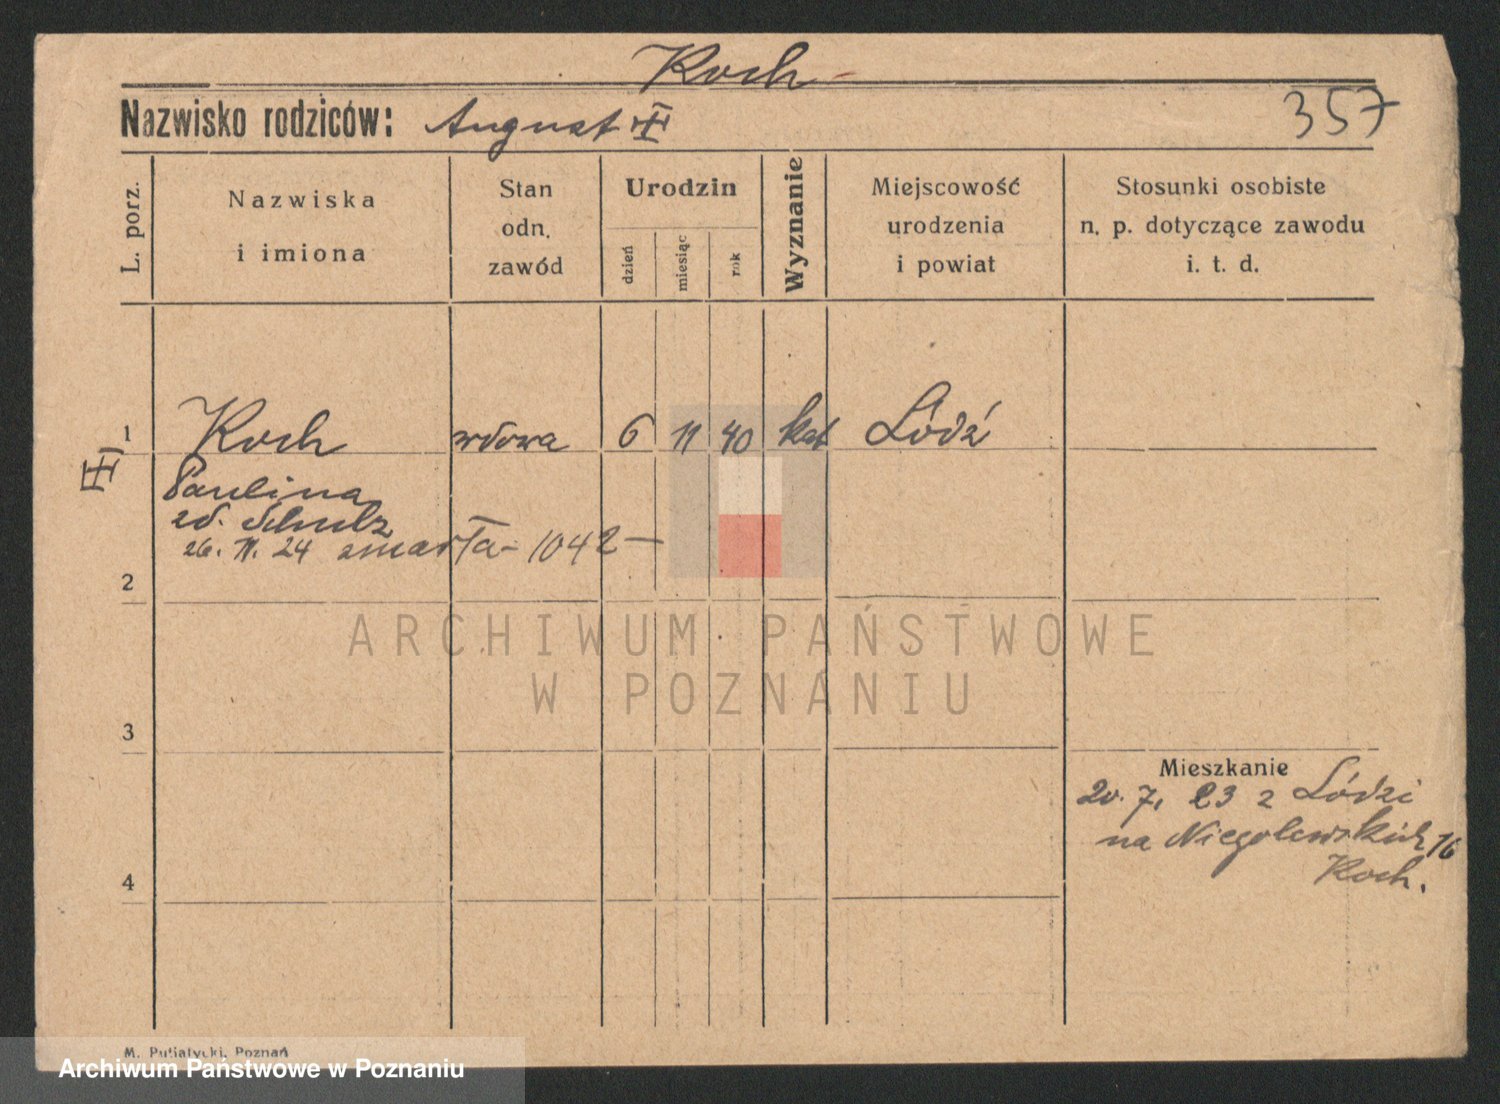 Koch
Nazwisko rodziców: August
357
L. porz.
Nazwiska
i imiona
Stan
odn.
zawód
Urodzin
dzień
miesiąc
rok
Wyznanie
Miejscowość
urodzenia
i powiat
Stosunki osobiste
n. p. dotyczące zawodu
i. t. d.
1 Koch wdowa 6 11 40 kat Łódź
Paulina
zd. Schulz
26. 11. 24 zmarła - 1042 —
2
ARCHIWUM PAŃSTWOWE
W POZNANIU
3
Mieszkanie
20. 7. 23 z Łodzi
na Niegolewskich 16
Koch.
4
M. Putiatycki, Poznań
Archiwum Państwowe w Poznaniu